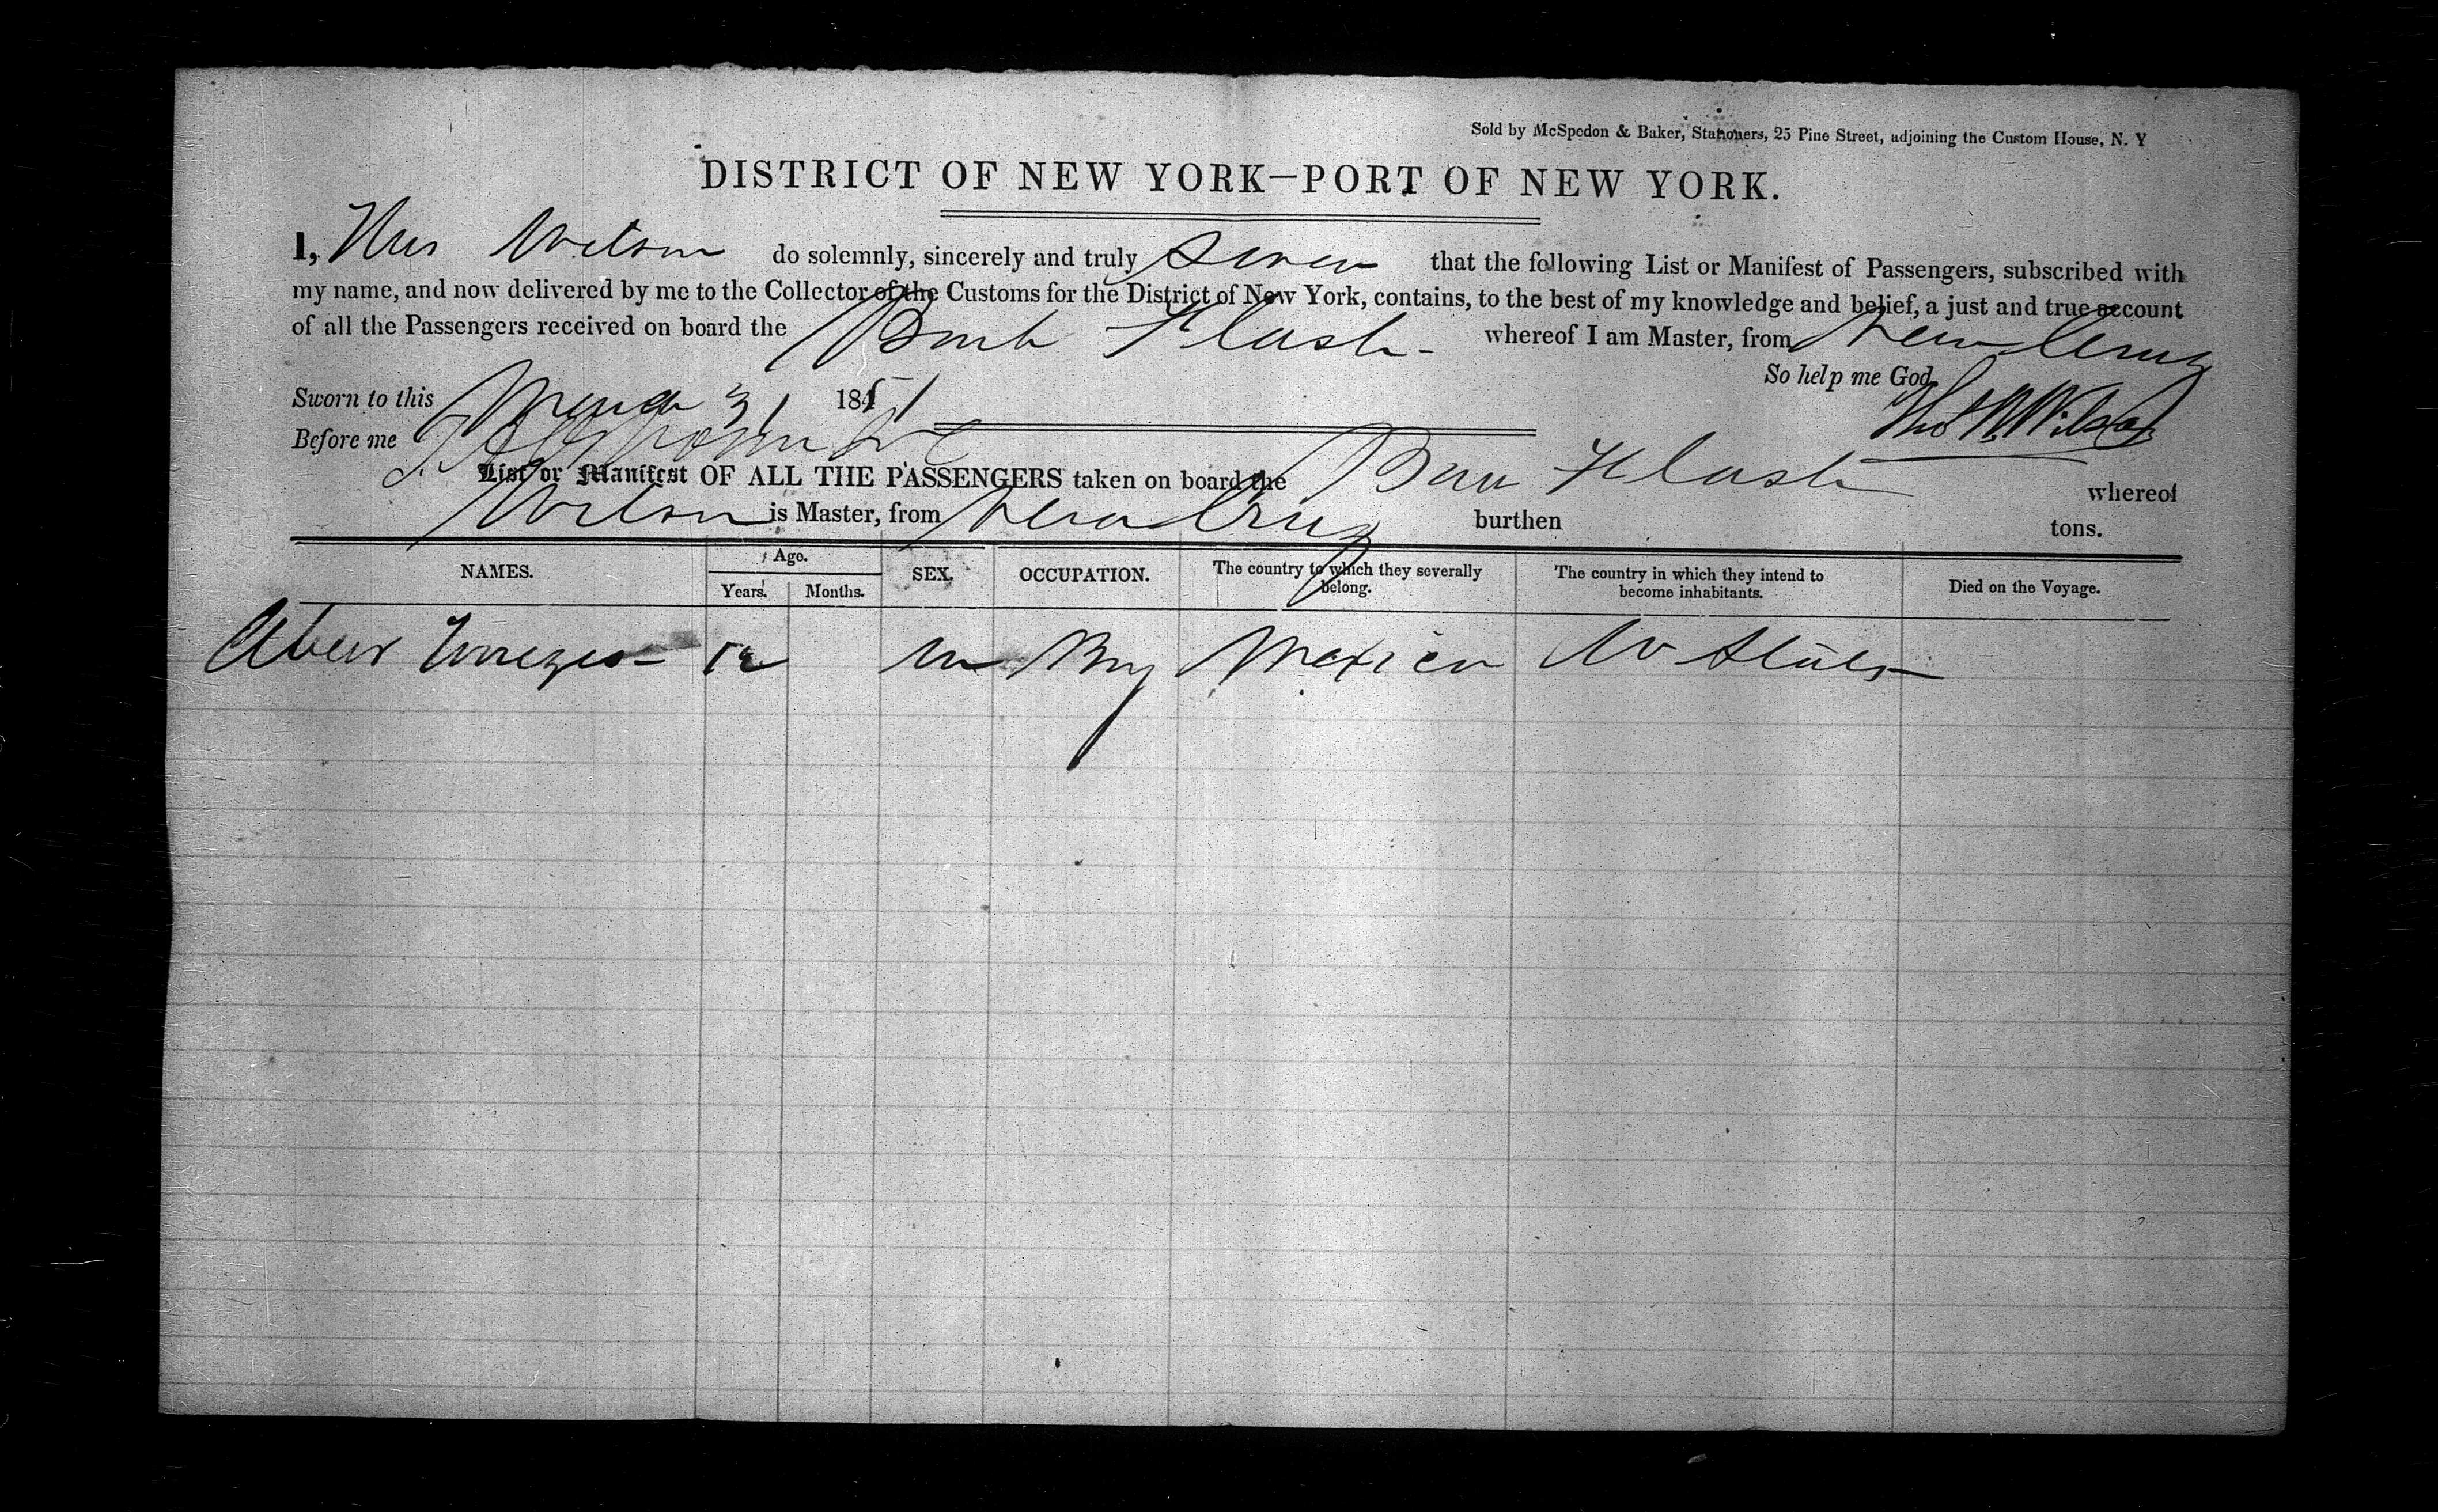 Sold by McSpedon & Baker, Stationers, 25 Pine Street, adjoining the Custom House, N. Y
DISTRICT OF NEW YORK—PORT OF NEW YORK.
I, Thos Wilson do solemnly, sincerely and truly Swear that the following List or Manifest of Passengers, subscribed with
my name, and now delivered by me to the Collector of the Customs for the District of New York, contains, to the best of my knowledge and belief, a just and true account
of all the Passengers received on board the Bark Flash whereof I am Master, from Vera Cruz
So help me God
Sworn to this March 31 1851
Thos Wilson
Before me
List or Manifest OF ALL THE PASSENGERS taken on board the Bark Flash whereof
Wilson is Master, from Vera Cruz burthen tons.
NAMES. Age. Years. Months. SEX. OCCUPATION. The country to which they severally belong. The country in which they intend to become inhabitants. Died on the Voyage.
12 m Boy Mexico U States